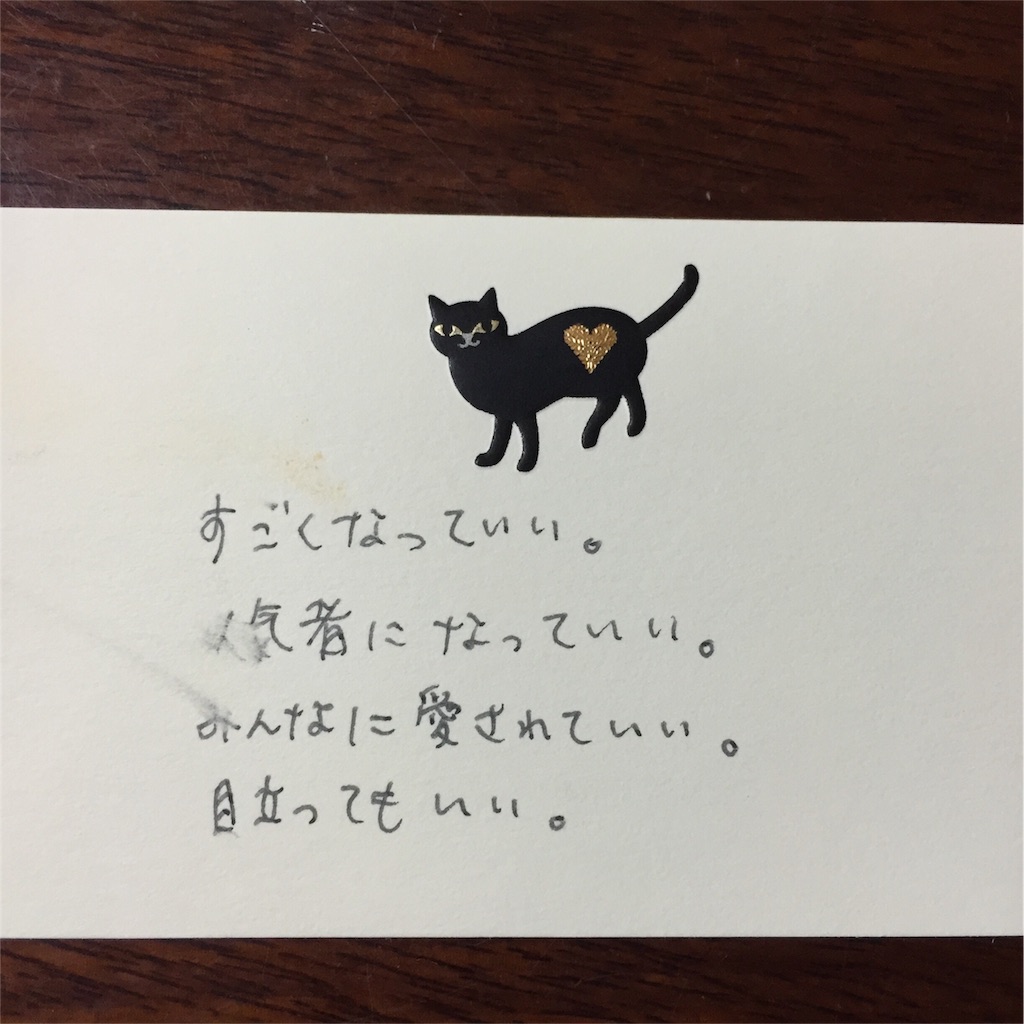 すごくなっていい。
人気者になっていい。
みんなに愛されていい。
目立ってもいい。